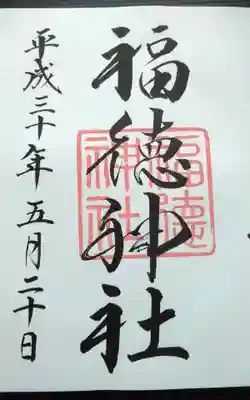 福徳神社
平成三十年五月二十日
福徳
神社